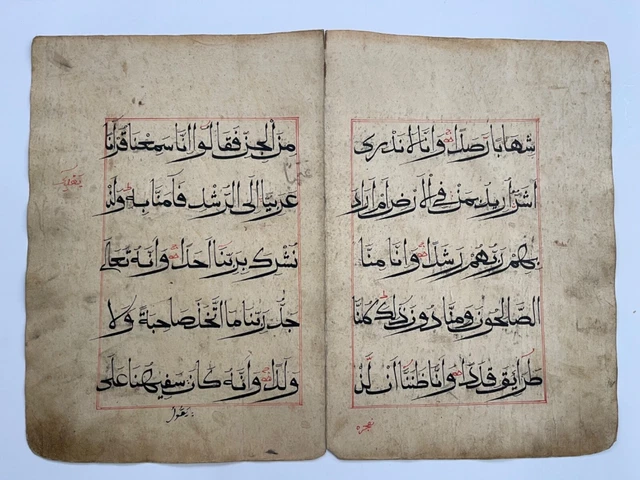 شهابا رصدا وانا لا ندري
اشر اريد بمن في الارض ام اراد
بهم ربهم رشدا وانا منا
الصالحون ومنا دون ذلك كنا
طرايق قددا وانا ظننا ان لن
من الجن فقالوا انا سمعنا قرانا
عربيا الى الرشد فامنا به ولن
نشرك بربنا احدا وانه تعالى
جد ربنا ما اتخذ صاحبة ولا
ولدا وانه كان سفيهنا على
يقول